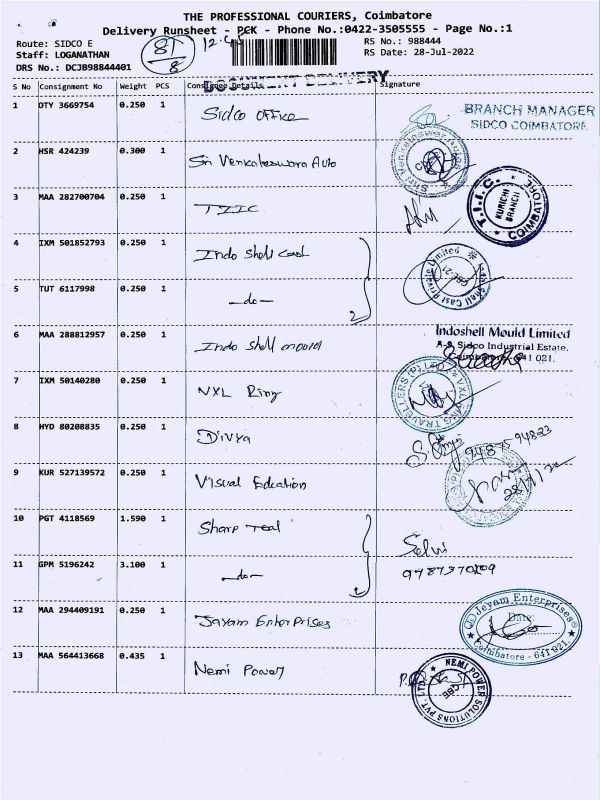 THE PROFESSIONAL COURIERS, Coimbatore
Delivery Runsheet - PCK - Phone No.:0422-3505555 - Page No.:1
Route: SIDCO E
Staff: LOGANATHAN
DRS No.: DCJB98844401
RS No.: 988444
RS Date: 28-Jul-2022
DOCUMENT DELIVERY
S No Consignment No Weight PCS Consignee Details Signature
1 DTY 3669754 0.250 1 Sidco office
BRANCH MANAGER
SIDCO COIMBATORE
2 HSR 424239 0.300 1 Sri Venkateswara Auto
3 MAA 282700704 0.250 1 TIIC
T.I.I.C.
KURICHI
BRANCH
COIMBATORE
4 IXM 501852793 0.250 1 Indo Shell Cast
Indo Shell Cast Private Limited
CBE-21
5 TUT 6117998 0.250 1 -do-
2
6 MAA 288812957 0.250 1 Indo Shell mould
Indoshell Mould Limited
A-9 Sidco Industrial Estate,
Coimbatore 641 021.
7 IXM 50140280 0.250 1 NXL Ring
8 HYD 80208835 0.250 1 Divya
9 KUR 527139572 0.250 1 Visual Education
10 PGT 4118569 1.590 1 Sharp Teal
Selvi
11 GPM 5196242 3.100 1 -do-
12 MAA 294409191 0.250 1 Jayam Enterprises
Jeyam Enterprises
Date:
Coimbatore - 641 021.
13 MAA 564413668 0.435 1 Nemi Power
NEMI POWER SOLUTIONS PVT. LTD.
CBE